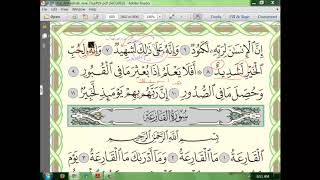 إِنَّ ٱلْإِنسَٰنَ لِرَبِّهِۦ لَكَنُودٌ ٦ وَإِنَّهُۥ عَلَىٰ ذَٰلِكَ لَشَهِيدٌ ٧ وَإِنَّهُۥ لِحُبِّ
ٱلْخَيْرِ لَشَدِيدٌ ٨ ۞ أَفَلَا يَعْلَمُ إِذَا بُعْثِرَ مَا فِى ٱلْقُبُورِ ٩
وَحُصِّلَ مَا فِى ٱلصُّدُورِ ١٠ إِنَّ رَبَّهُم بِهِمْ يَوْمَئِذٍ لَّخَبِيرٌۢ ١١
سُورَةُ ٱلْقَارِعَةِ
بِسْمِ ٱللَّهِ ٱلرَّحْمَٰنِ ٱلرَّحِيمِ
ٱلْقَارِعَةُ ١ مَا ٱلْقَارِعَةُ ٢ وَمَآ أَدْرَىٰكَ مَا ٱلْقَارِعَةُ ٣ يَوْمَ